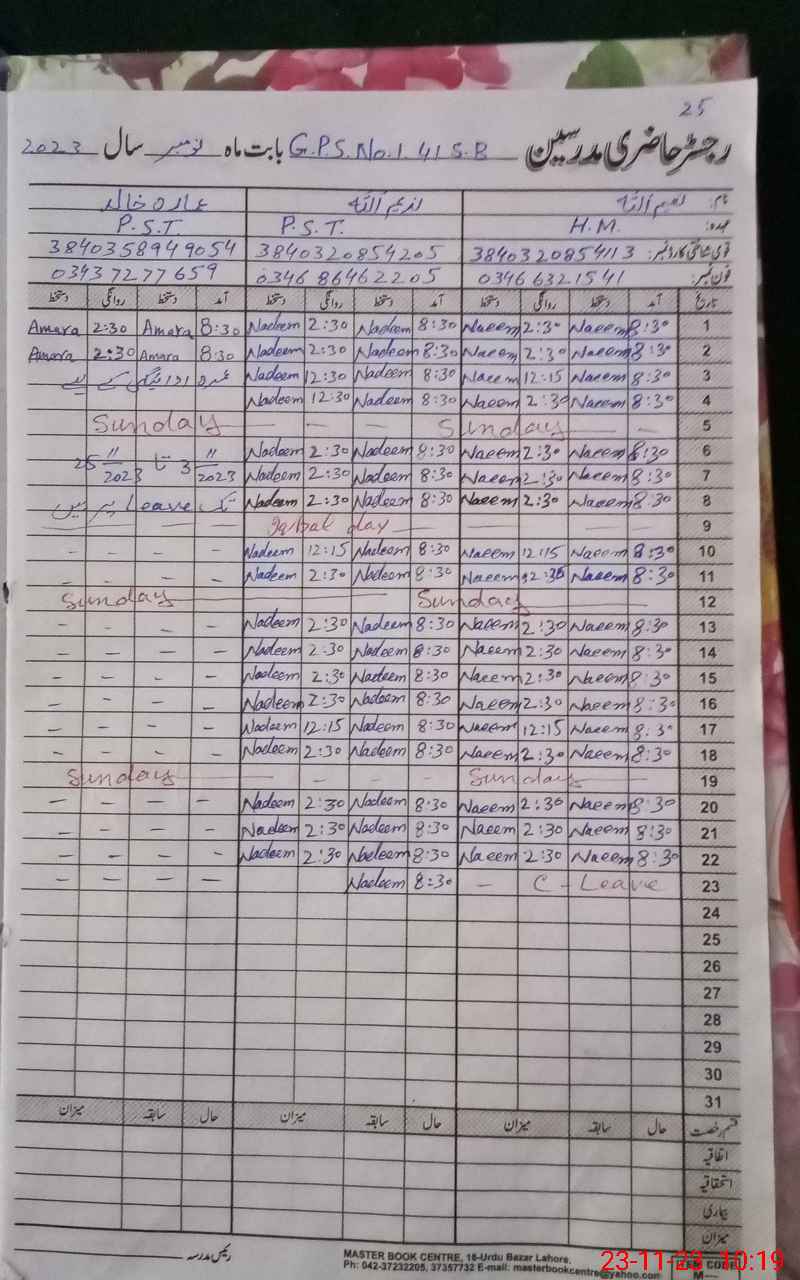 25
رجسٹر حاضری مدرسین G.P.S. No.1 41 S.B بابت ماہ نومبر سال 2023
نام: نعیم اللہ ندیم اللہ عمارہ خالد
عہدہ: H.M. P.S.T. P.S.T.
قومی شناختی کارڈ نمبر: 3840320854113 3840320854205 3840358949054
فون نمبر: 03466321541 03468646220​5 03437277659
تاریخ آمد دستخط روانگی دستخط آمد دستخط روانگی دستخط آمد دستخط روانگی دستخط
1 8:30 Naeem 2:30 Naeem 8:30 Nadeem 2:30 Nadeem 8:30 Amara 2:30 Amara
2 8:30 Naeem 2:30 Naeem 8:30 Nadeem 2:30 Nadeem 8:30 Amara 2:30 Amara
3 8:30 Naeem 12:15 Naeem 8:30 Nadeem 12:30 Nadeem عمرہ ادائیگی کے لیے
4 8:30 Naeem 2:30 Naeem 8:30 Nadeem 12:30 Nadeem
5 Sunday — — — Sunday
6 8:30 Naeem 2:30 Naeem 8:30 Nadeem 2:30 Nadeem 3 11/2023 تا 25 11/2023
7 8:30 Naeem 2:30 Naeem 8:30 Nadeem 2:30 Nadeem
8 8:30 Naeem 2:30 Naeem 8:30 Nadeem 2:30 Nadeem تک Leave پر ہیں
9 Iqbal day
10 8:30 Naeem 12:15 Naeem 8:30 Nadeem 12:15 Nadeem - - - -
11 8:30 Naeem 2:30 Naeem 8:30 Nadeem 2:30 Nadeem - - - -
12 Sunday Sunday
13 8:30 Naeem 2:30 Naeem 8:30 Nadeem 2:30 Nadeem - - - -
14 8:30 Naeem 2:30 Naeem 8:30 Nadeem 2:30 Nadeem - - - -
15 8:30 Naeem 2:30 Naeem 8:30 Nadeem 2:30 Nadeem - - - -
16 8:30 Naeem 2:30 Naeem 8:30 Nadeem 2:30 Nadeem - - - -
17 8:30 Naeem 12:15 Naeem 8:30 Nadeem 12:15 Nadeem - - - -
18 8:30 Naeem 2:30 Naeem 8:30 Nadeem 2:30 Nadeem - - - -
19 Sunday - - - Sunday
20 8:30 Naeem 2:30 Naeem 8:30 Nadeem 2:30 Nadeem - - - -
21 8:30 Naeem 2:30 Naeem 8:30 Nadeem 2:30 Nadeem - - - -
22 8:30 Naeem 2:30 Naeem 8:30 Nadeem 2:30 Nadeem - - - -
23 C - Leave - 8:30 Nadeem - - - -
24
25
26
27
28
29
30
31
قسم رخصت حال سابقہ میزان حال سابقہ میزان حال سابقہ میزان
اتفاقیہ
استحقاقیہ
بیماری
میزان
رئیس مدرسہ
MASTER BOOK CENTRE, 16-Urdu Bazar Lahore.
Ph: 042-37232205, 37357732 E-mail: masterbookcentre@yahoo.com
CODE
M—
23-11-23 10:19